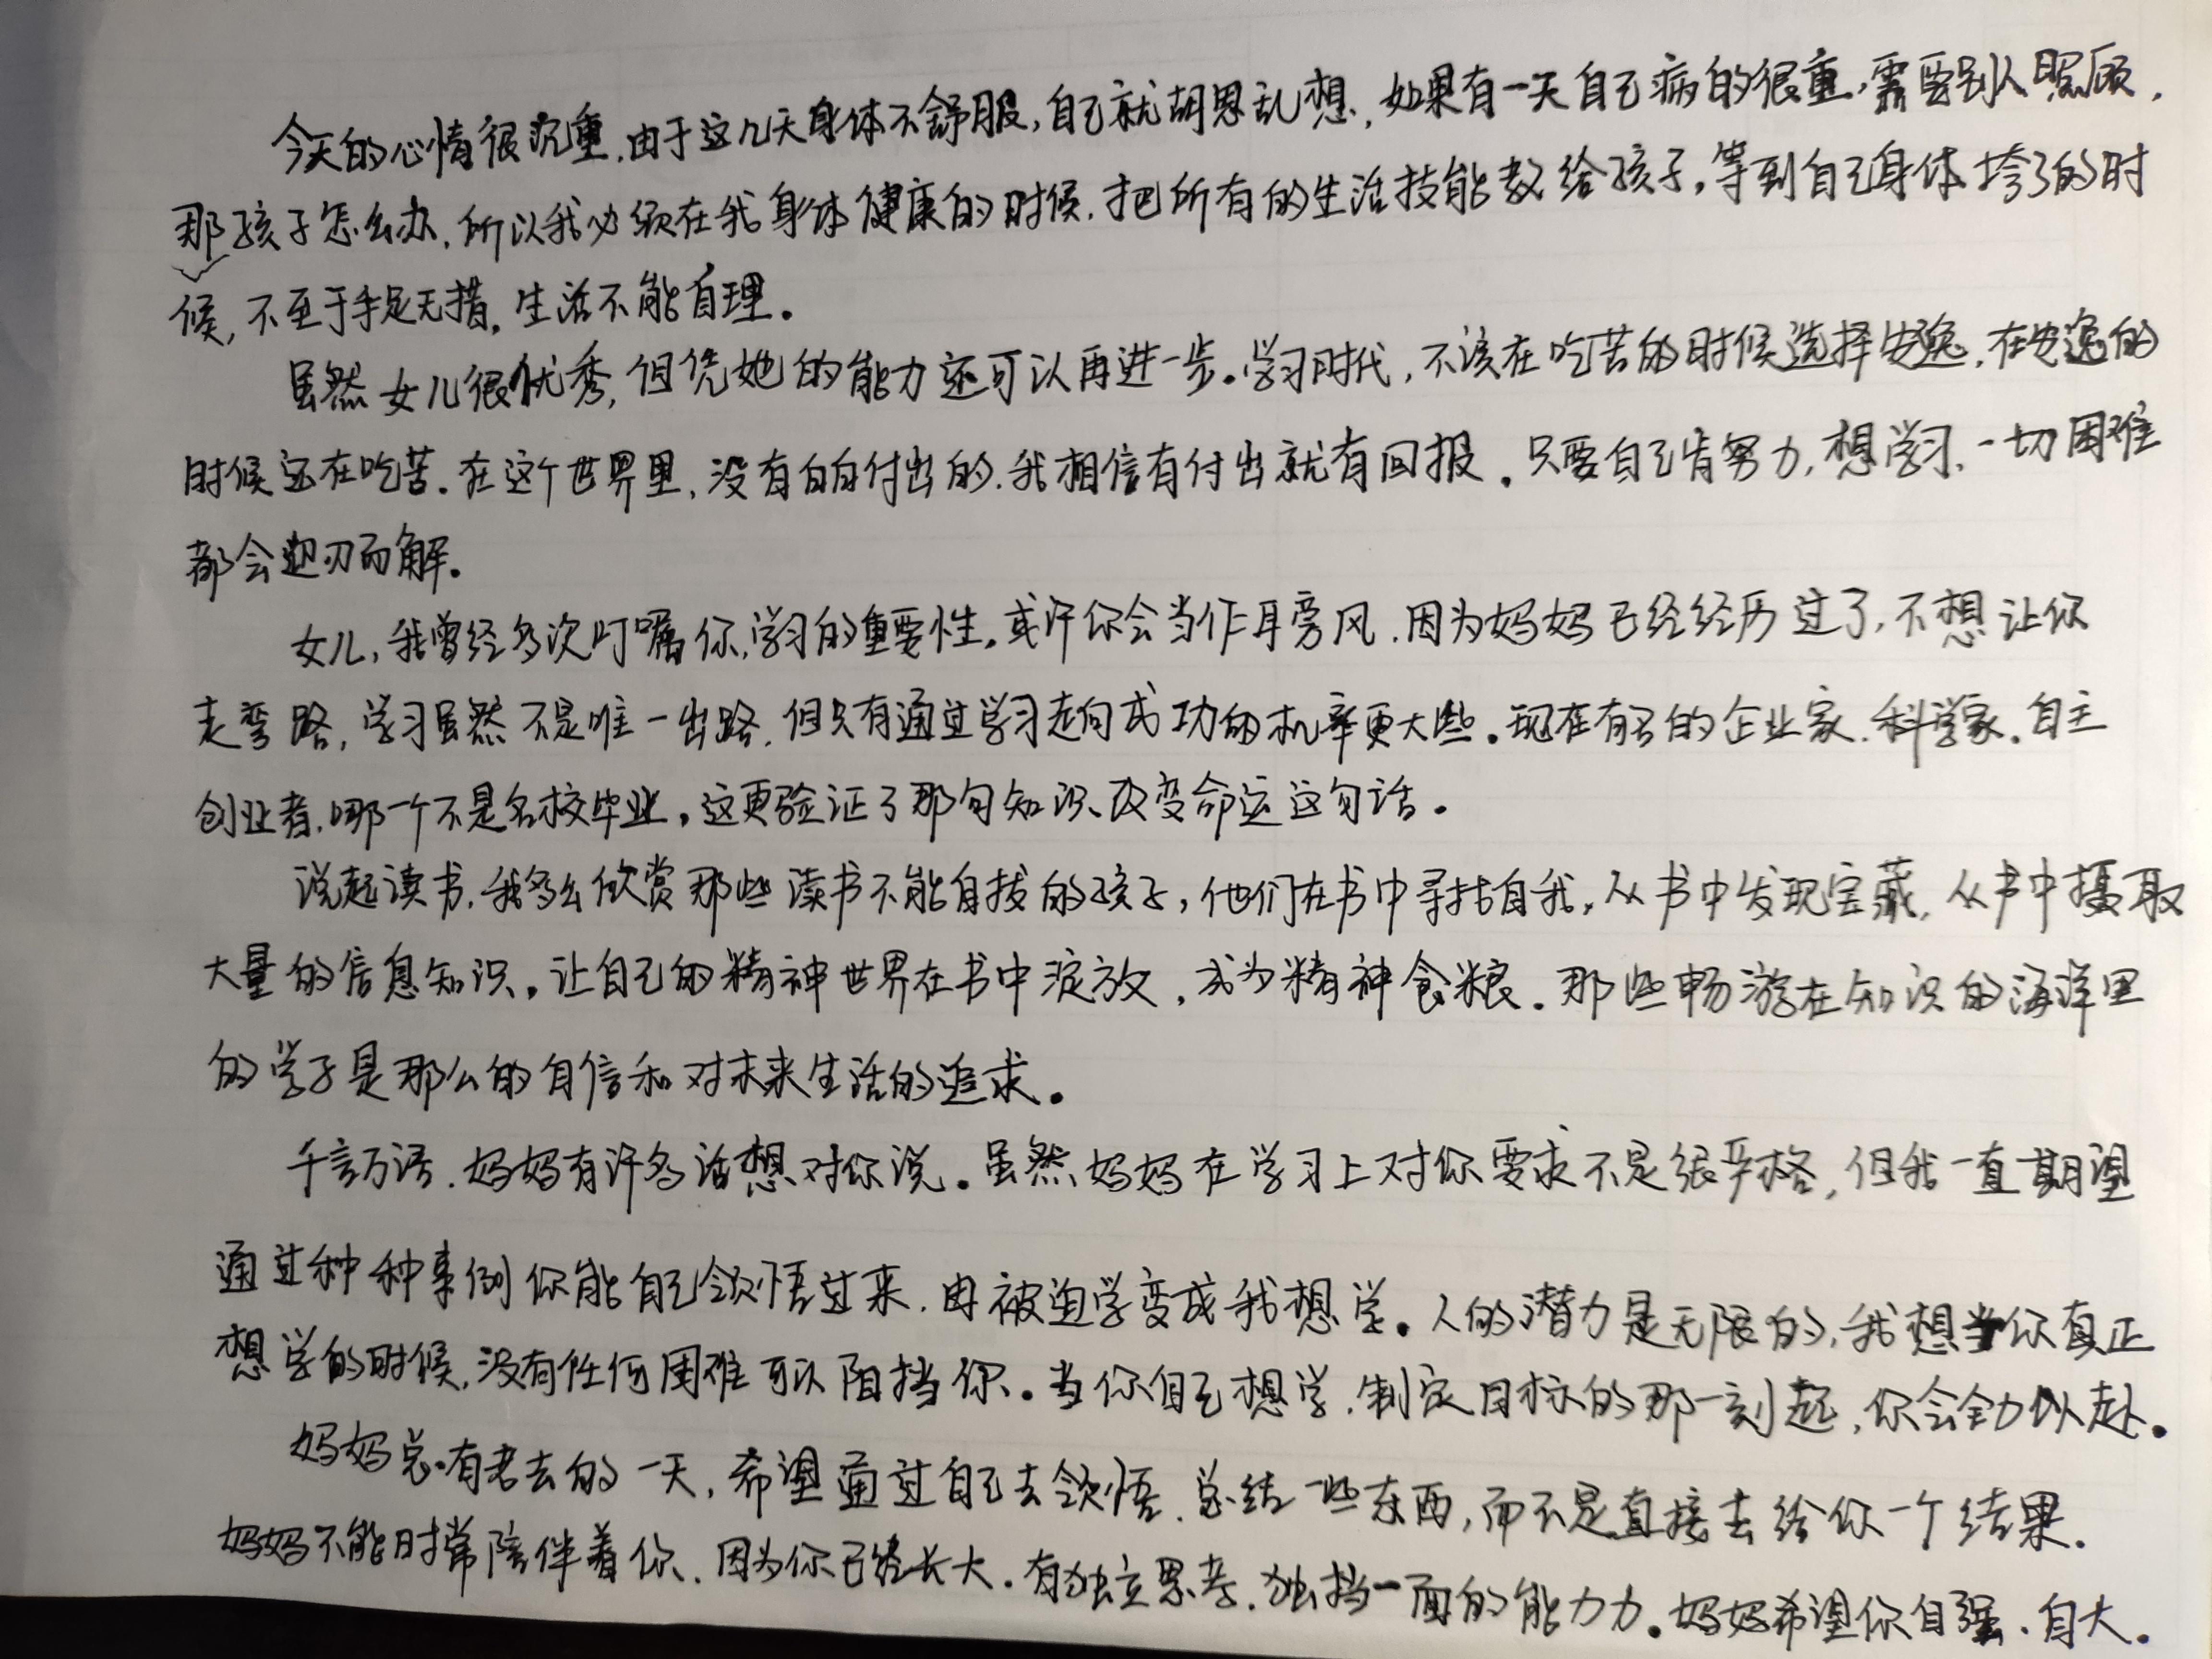 今天的心情很沉重,由于这几天身体不舒服,自己就胡思乱想,如果有一天自己病的很重,需要别人照顾,
那孩子怎么办,所以我必须在我身体健康的时候,把所有的生活技能教给孩子,等到自己身体垮了的时
候,不至于手足无措,生活不能自理。
虽然女儿很优秀,但凭她的能力还可以再进一步。学习时代,不该在吃苦的时候选择安逸,在安逸的
时候还在吃苦。在这个世界里,没有白白付出的,我相信有付出就有回报。只要自己肯努力,想学习、一切困难
都会迎刃而解。
女儿,我曾经多次叮嘱你,学习的重要性。或许你会当作耳旁风,因为妈妈已经经历过了,不想让你
走弯路,学习虽然不是唯一出路,但只有通过学习走向成功的机率更大些。现在有名的企业家、科学家、自主
创业者,哪一个不是名校毕业。这更验证了那句知识改变命运这句话。
说起读书,我多么欣赏那些读书不能自拔的孩子,他们在书中寻找自我,从书中发现宝藏,从书中摄取
大量的信息知识。让自己的精神世界在书中绽放,成为精神食粮。那些畅游在知识的海洋里
的学子是那么的自信和对未来生活的追求。
千言万语,妈妈有许多话想对你说。虽然妈妈在学习上对你要求不是很严格,但我一直期望
通过种种事例你能自己领悟过来,由被迫学变成我想学。人的潜力是无限的,我想当你真正
想学的时候,没有任何困难可以阻挡你。当你自己想学,制定目标的那一刻起,你会全力以赴。
妈妈总有老去的一天,希望通过自己去领悟、总结一些东西,而不是直接去给你一个结果。
妈妈不能时常陪伴着你,因为你已经长大。有独立思考、独挡一面的能力力。妈妈希望你自强、自大。